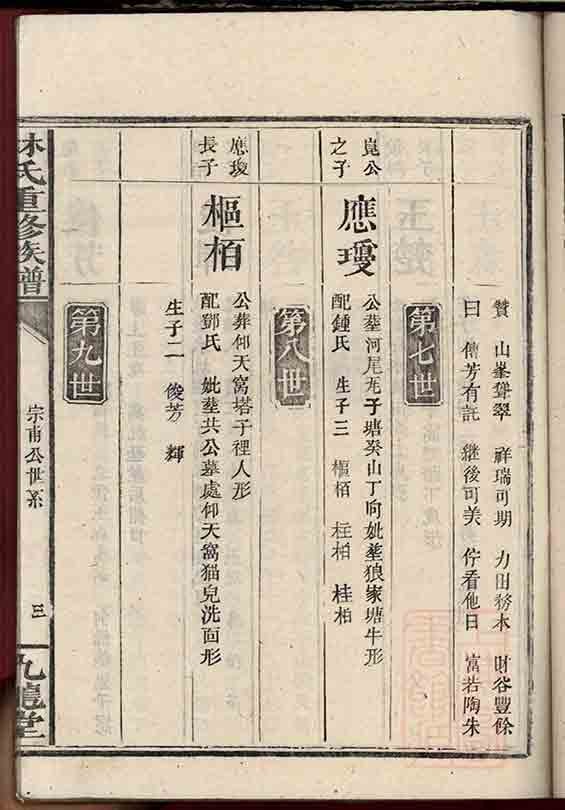 贊　山峯聳翠　祥瑞可期　力田務本　財谷豐餘
曰　傳芳有託　継後可美　佇看他日　富若陶朱
第七世
崑公之子
應瑷
公塟河尾尧子塘癸山丁向妣塟狼家塘牛形
配鍾氏　生子三　樞栢　枉栢　桂栢
第八世
應瑷長子
樞栢
公葬仰天窩塔子裡人形
配鄧氏　妣塟共公墓處仰天窩猫兒洗面形
生子二　俊芳　輝
第九世
林氏重修族譜
宗甫公世系
三
九龍堂